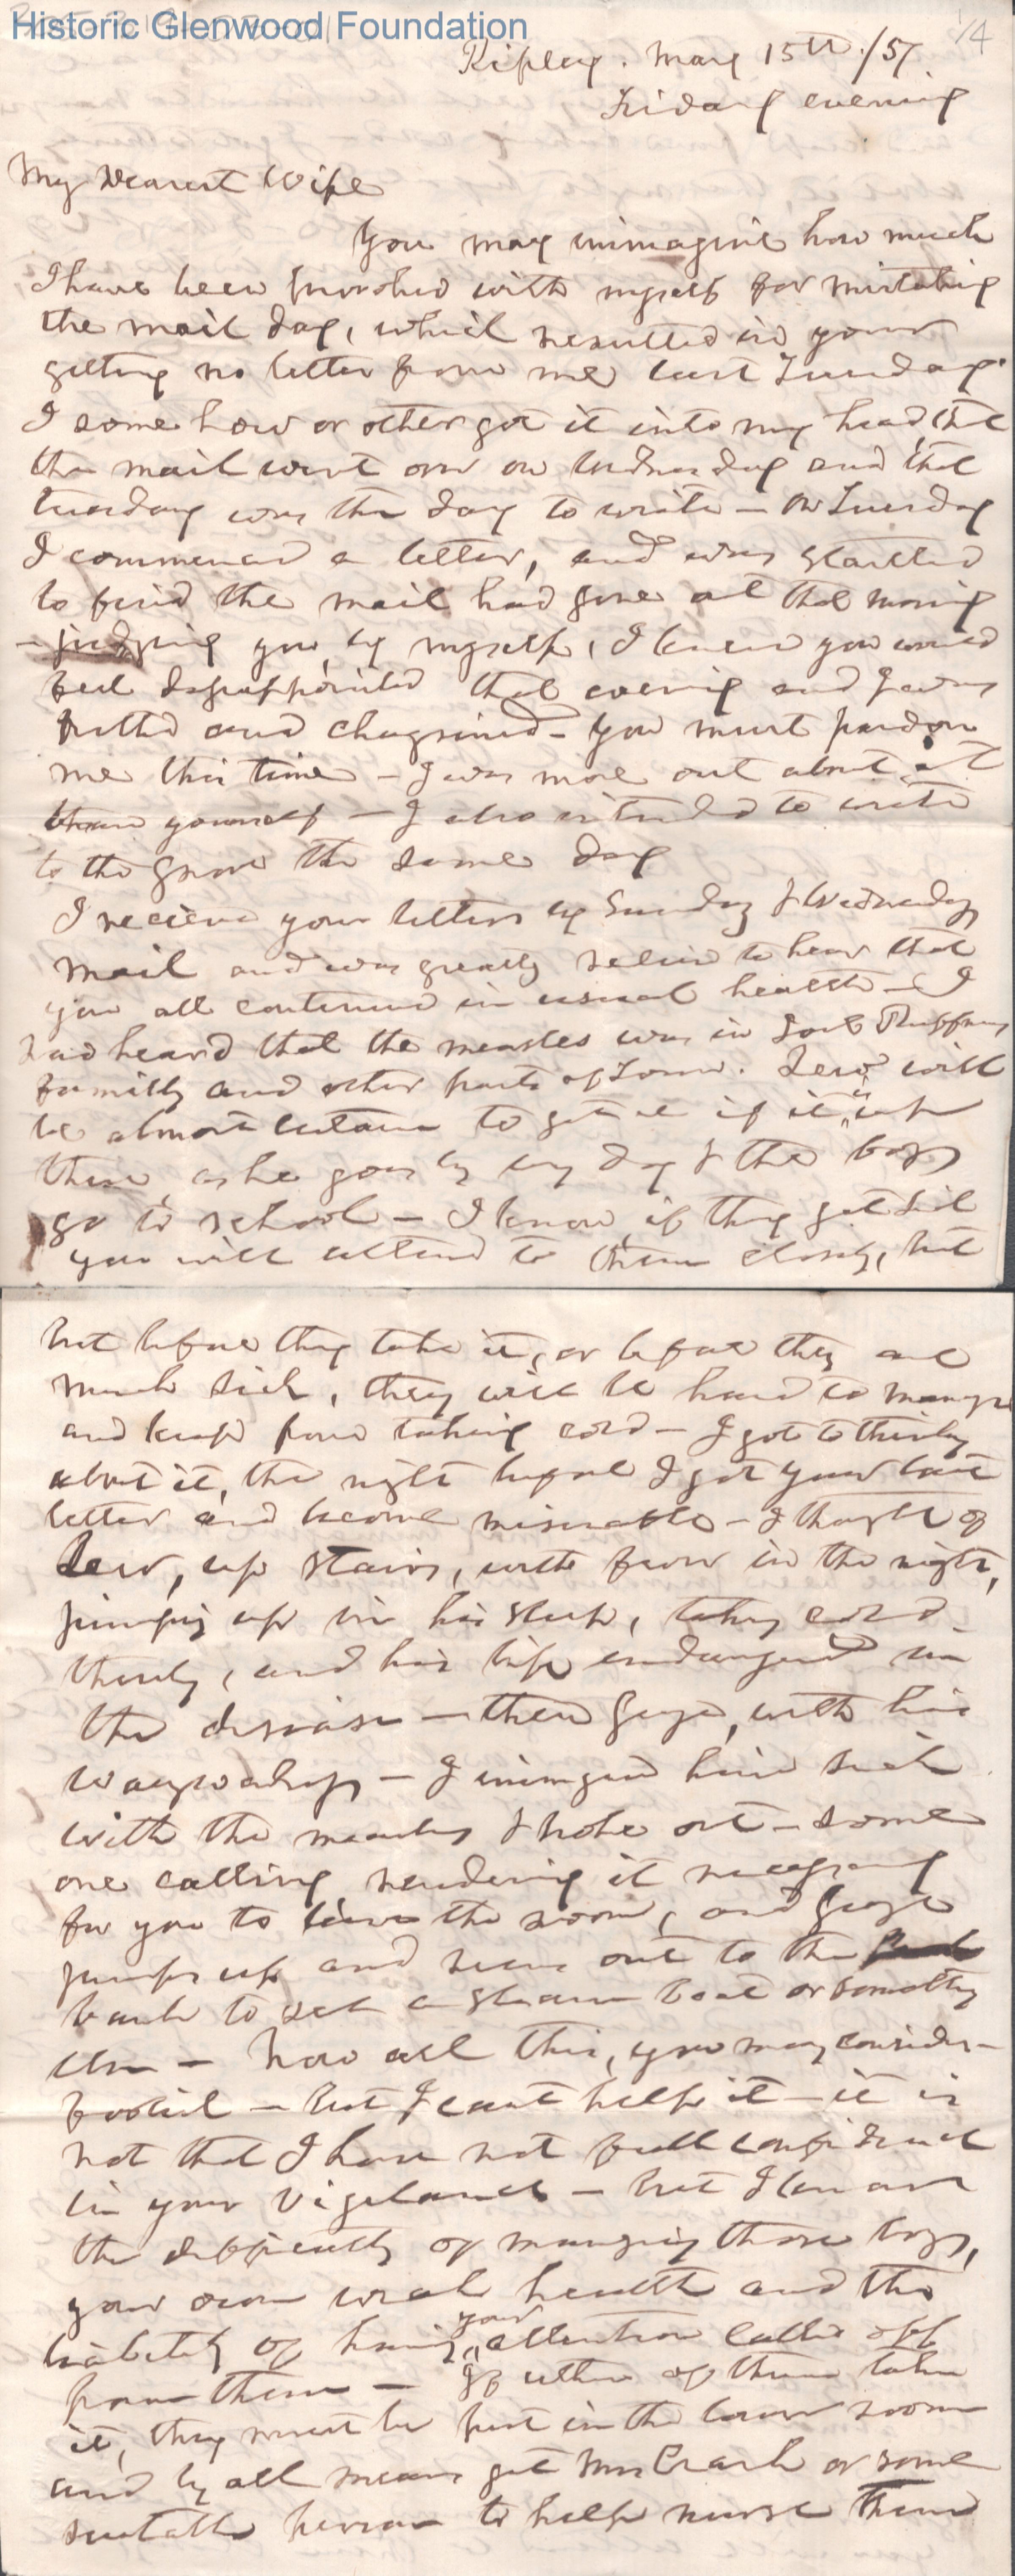 Historic Glenwood Foundation
1/4
Ripley. May 15th /57.
Friday evening
My Dearest Wife
You may immagine how much
I have been provoked with myself for mistaking
the mail day, which resulted in your
getting no letter from me last Tuesday.
I some how or other got it into my head, that
the mail went over on Wednesday and that
tuesday was the day to write — On Tuesday
I commenced a letter, and was startled
to find the mail had gone out that morning
— judging you by myself, I knew you would
feel dissappointed that evening and I was
and chagrined — You must pardon
me this time — I was more out about it
than yourself — I also intended to write
to the Grove the same day
I recieve your letters by Sunday & Wednesday
mail and was greatly relieved to hear that
you all continued in usual health — I
had heard that the measles was in Joel Ruffners
family and other parts of Town. Lew will
be almost certain to get it if it is up
there as he goes by every day & the boys
go to school — I know, if they get sick
you will attend to them closely, but
but before they take it, or before they are
much sick, they will be hard to manage
and keep from taking cold — I got to thinking
about it, the night before I got your last
letter and became miserable — I thought of
Lew, up stairs, with fever in the night,
jumping up in his sleep, taking cold
thereby, and his life endangered in
the disease — then George, with his
— I immagined him sick
with the measles & broke out — some
one calling, rendering it necessary
for you to leave the room, and George
jumps up and runs out to the
bank to see a steam boat or something
else — Now all this, you may consider
foolish — but I cant help it — it is
not that I have not full confidence
in your vigilance — but I know
the difficulty of managing those boys,
your own weak health and the
liability of having your attention called off
from them — If either of them take
it, they must be put in the lower room
and by all means get Mrs or some
suitable person to help nurse them